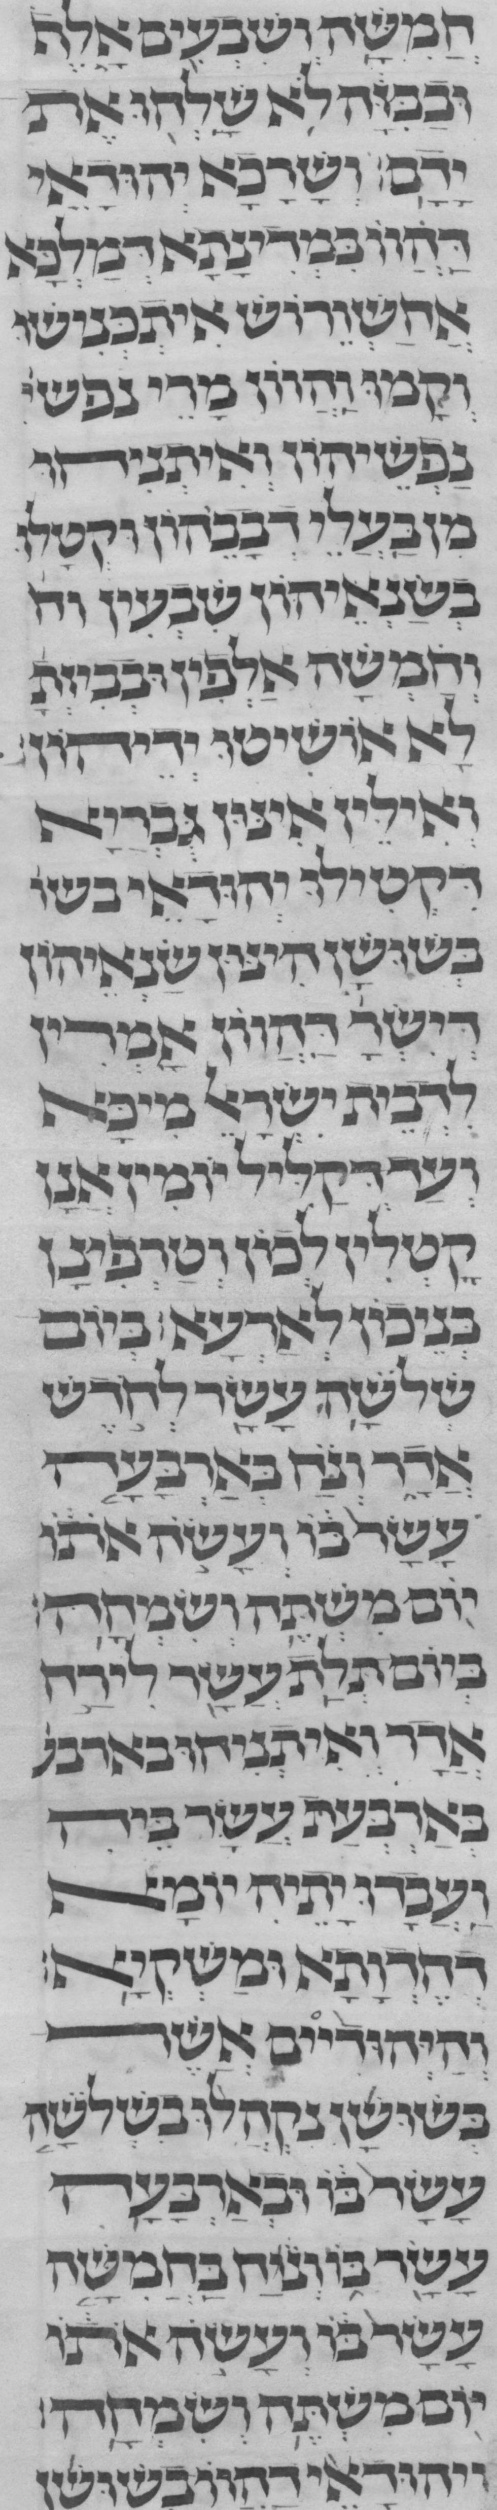 חֲמִשָּׁה וְשִׁבְעִים אָלֶף
וּבַבִּזָּה לֹא שָׁלְחוּ אֶת
יָדָם׃ וּשְׁאָרָכָא יְהוּדָאֵי
דַּהֲווֹ בִּמְדִינָתָא דְּמַלְכָּא
אֲחַשְׁוֵרוֹשׁ אִיתְכְּנִישׁוּ
וְקָמוּ וַהֲווֹן מָרֵי נפשׁי
נַפְשֵׁיהוֹן וְאִיתְנִיחוּ
מִן בַּעֲלֵי דְבָבֵהוֹן וּקְטָלוּ
בְּשַׂנְאֵיהוֹן שִׁבְעִין וח
וְחַמְשָׁה אַלְפִין וּבְבִיזְתָּ
לָא אוֹשִׁיטוּ יְדֵיהוֹן׃
וְאִילֵּין אִינּוּן גֻּבְרַיָּא
דִּקְטִילוּ יְהוּדָאֵי בשו
בְּשׁוּשַׁן חִינּוּן שַׂנְאֵיהוֹן
דְּיִשְׂרָ דַּהֲווֹן אָמְרִין
לִדְבֵית יִשְׂרָאֵל מִיכָּא
וְעַד דְּקַלִּיל יוֹמִין אֲנַן
קָטְלִין לְכוֹן וְטָרְפִינַן
בְּנֵיכוֹן לְאַרְעָא׃ בְּיוֹם
שְׁלֹשָׁה עָשָׂר לְחֹדֶשׁ
אֲדָר וְנֹחַ בְּאַרְבָּעָה
עָשָׂר בּוֹ וְעָשֹׂה אֹתוֹ
יוֹם מִשְׁתֶּה וְשִׂמְחָה׃
בְּיוֹם תְּלָת עֲשַׂר לִירַח
אֲדָר וְאִיתְנִיחוּ בארבע
בְּאַרְבְּעַת עֲשַׂר בֵּיהּ
וַעֲבָדוּ יָתֵיהּ יוֹמָא
דְּחֶדְוָתָא וּמַשְׁקְיָא׃
וְהַיְּהוּדִיִּים אֲשֶׁר
בְּשׁוּשָׁן נִקְהֲלוּ בִּשְׁלֹשָׁה
עָשָׂר בּוֹ וּבְאַרְבָּעָה
עָשָׂר בּוֹ וְנוֹחַ בַּחֲמִשָּׁה
עָשָׂר בּוֹ וְעָשֹׂה אֹתוֹ
יוֹם מִשְׁתֶּה וְשִׂמְחָה׃
ויהוּדָאֵי דַהֲווֹ בְּשׁוּשַׁן